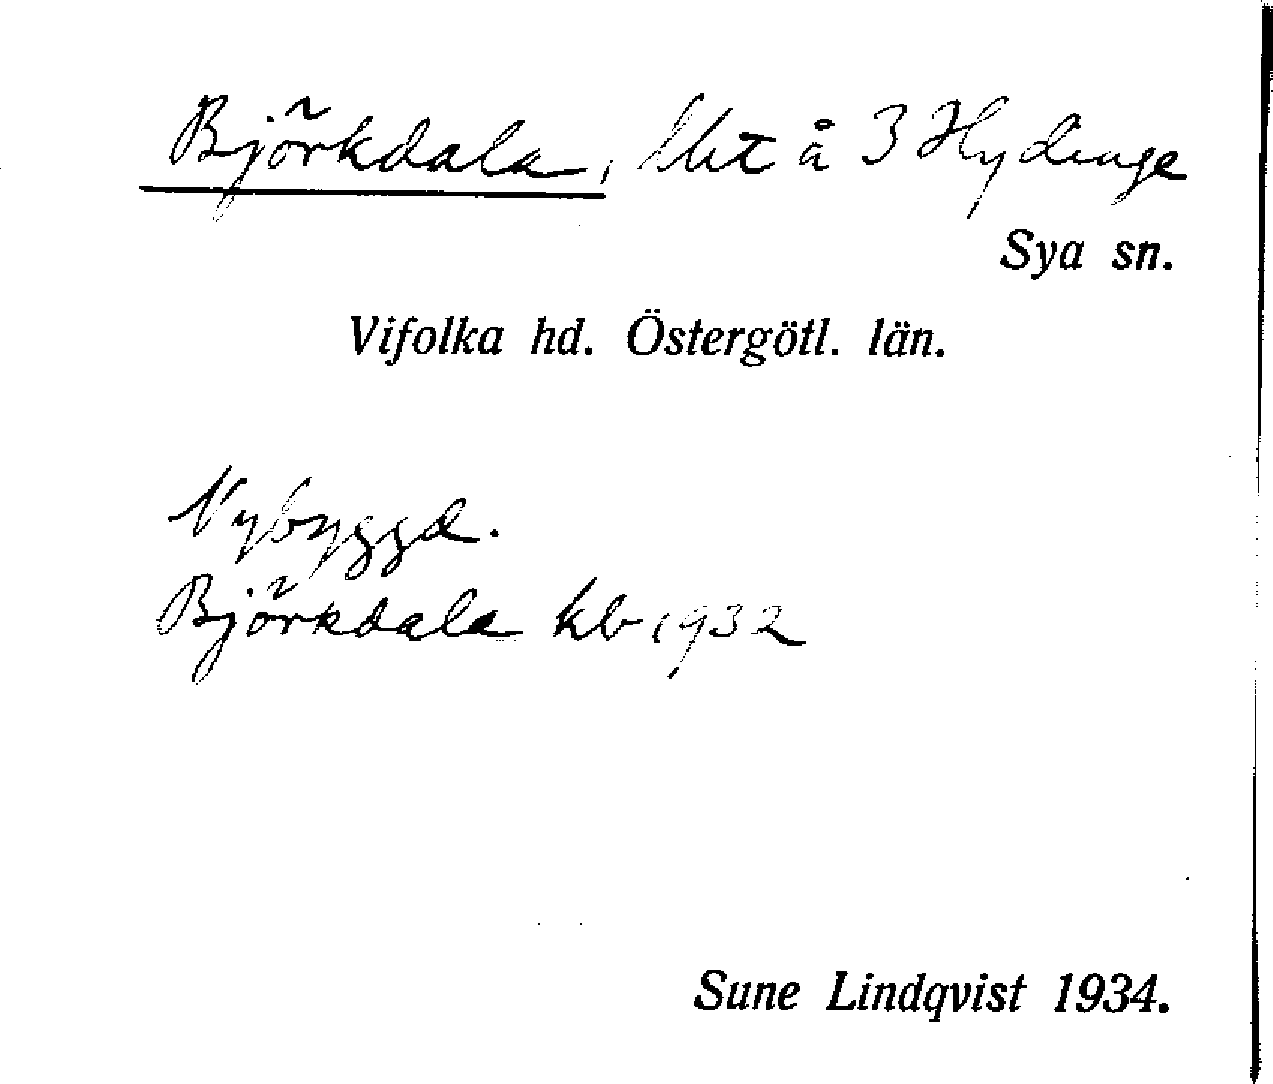 Björkdala, lht å 3 Hydinge
Sya sn.
Vifolka hd. Östergötl. län.
Nybyggd.
Björkdala kb 1932
Sune Lindqvist 1934.